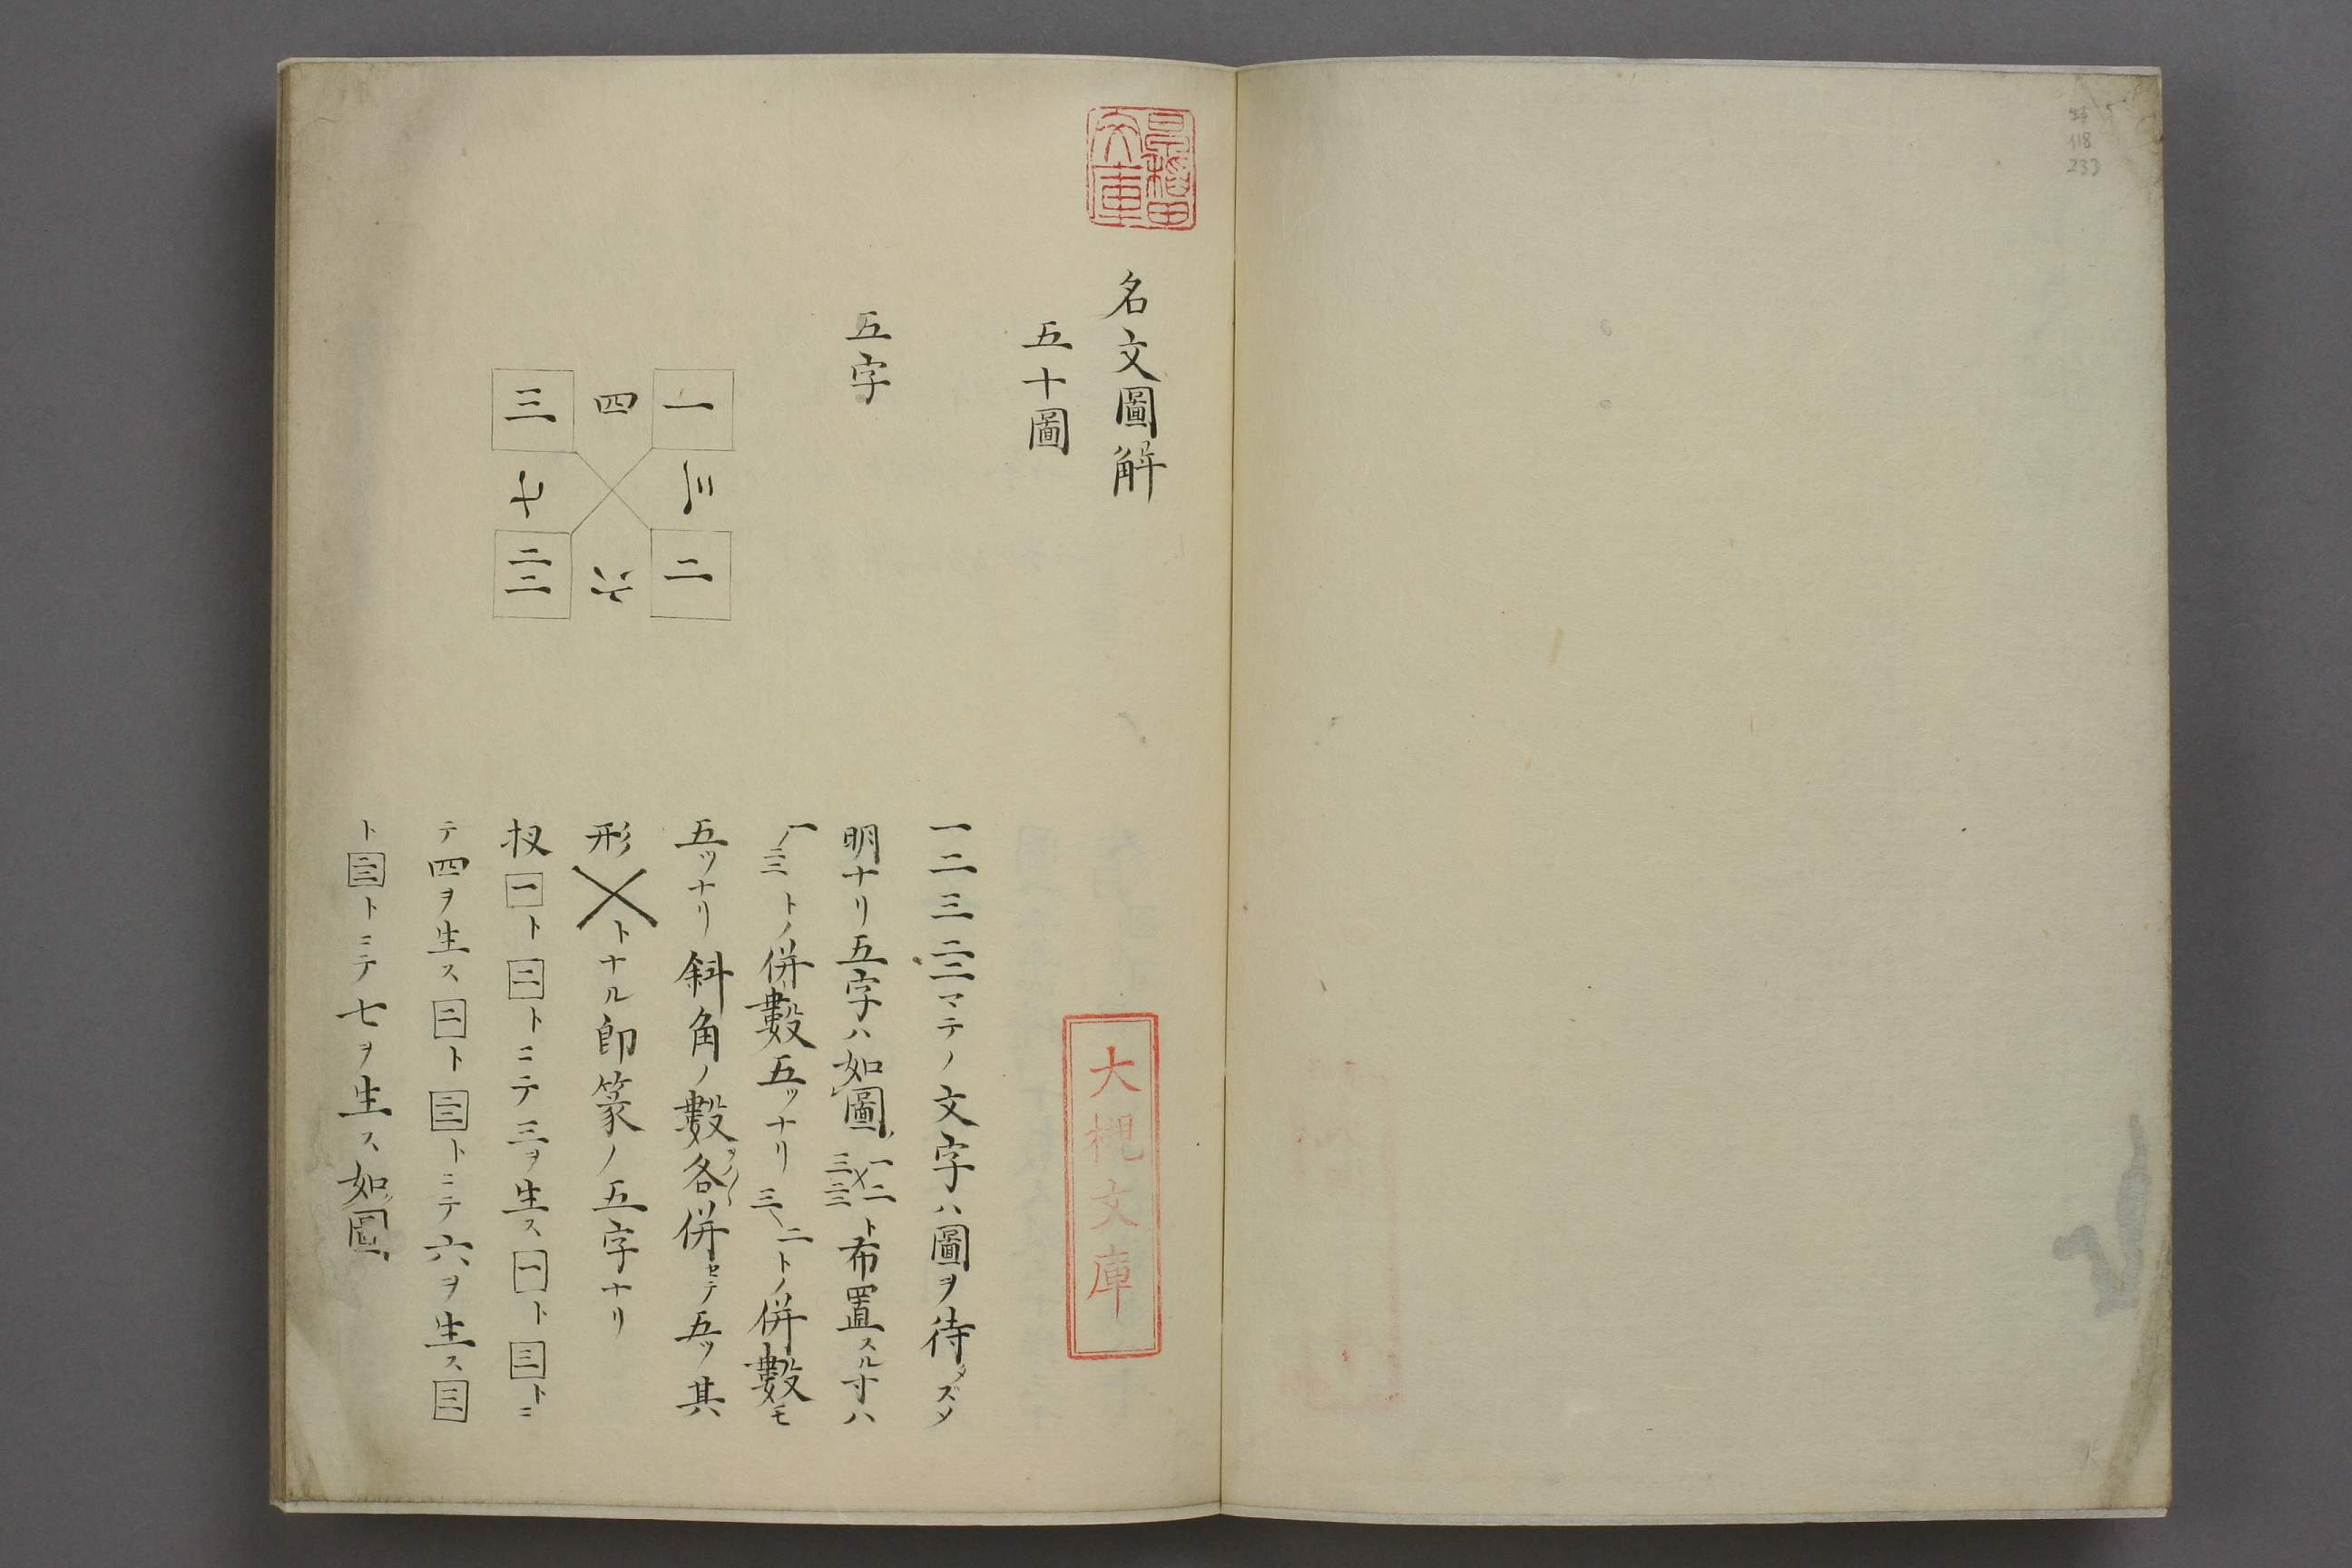 名文圖解
五十圖
五字
一 四 三
三 七
二 六 亖
一二三亖マテノ文字ハ圖ヲ待タズソ
明ナリ五字ハ如圖 一二×三亖 ト布置スル寸ハ
一ノ亖トノ併數五ツナリ三ヽ二トノ併數モ
五ツナリ斜角ノ數各併セテ五ツ其
形╳トナル即篆ノ五字ナリ
扠一ト二トニテ三ヲ生ス一ト三トニ
テ四ヲ生ス二ト亖トニテ六ヲ生ス三
ト亖トニテ七ヲ生ス如圖
早稲田文庫
大槻文庫
118
233